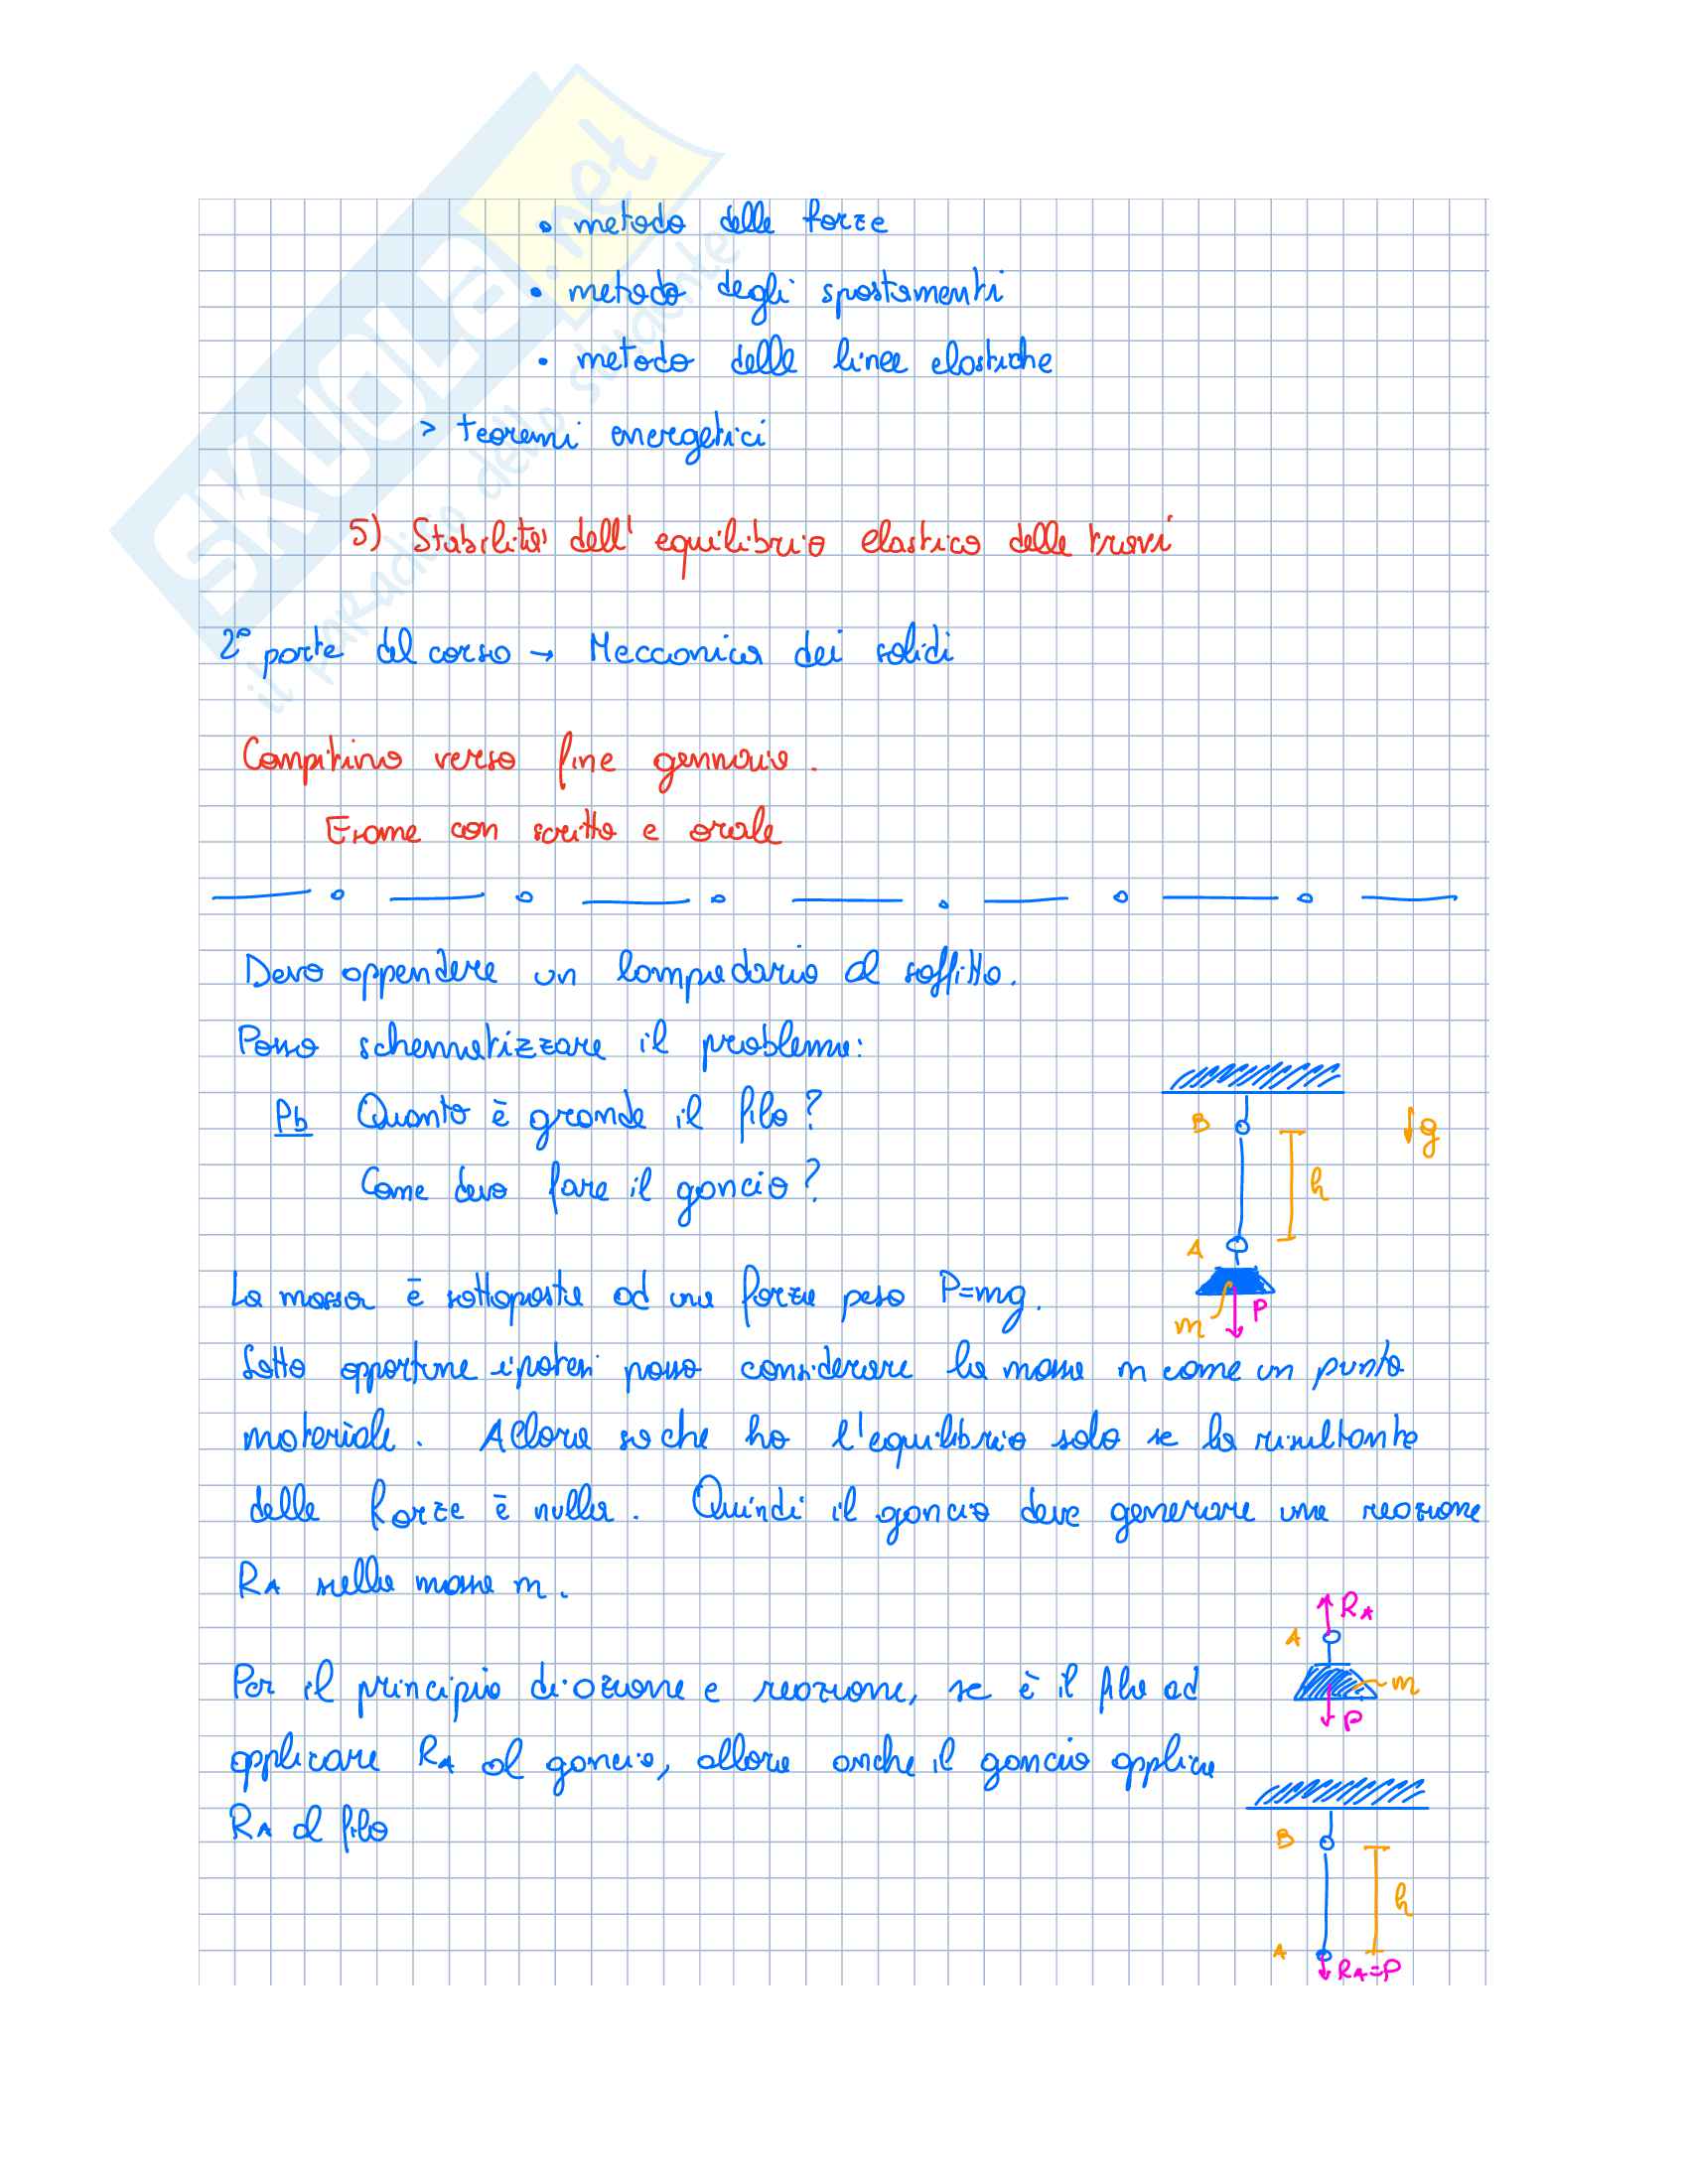 SKUOLA.net
il paradiso dello studente
• metodo delle forze
• metodo degli spostamenti
• metodo delle linee elastiche
> teoremi energetici
5) Stabilità dell'equilibrio elastico delle travi
2° parte del corso → Meccanica dei solidi
Compitino verso fine gennaio.
Esame con scritto e orale
Devo appendere un lampadario al soffitto.
Posso schematizzare il problema:
Pb Quanto è grande il filo?
Come devo fare il gancio?
B
g
h
A
m
P
La massa è sottoposta ad una forza peso P=mg.
Sotto opportune ipotesi posso considerare la massa m come un punto
materiale. Allora so che ho l'equilibrio solo se la risultante
delle forze è nulla. Quindi il gancio deve generare una reazione
RA sulla massa m.
RA
A
m
P
Per il principio di azione e reazione, se è il filo ad
applicare RA al gancio, allora anche il gancio applica
RA al filo
B
h
A
RA=P